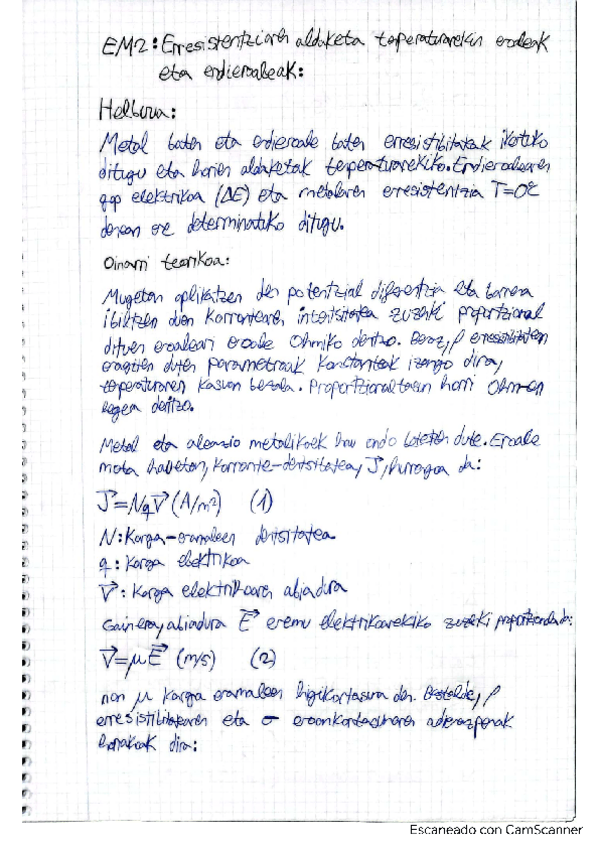 EM2: Erresistentziaren aldaketa tenperaturarekin eroaleak
eta erdieroaleak:
Helburua:
Metal baten eta erdieroale baten erresistibitateak ikertuko
ditugu eta horien aldaketak tenperaturarekiko. Erdieroalearen
gap elektrikoa (ΔE) eta metalaren erresistentzia T=0ºC
denean ere determinatuko ditugu.
Oinarri teorikoa:
Mugetan aplikatzen den potentzial diferentzia eta barrena
ibiltzen den korrontearen intentsitatea zuzenki proportzional
dituen eroaleari eroale Ohmiko deritzo. Beraz, ρ erresistibitatean
eragiten duten parametroak konstanteak izango dira,
tenperaturaren kasuan bezala. Proportzionaltasun horri Ohm-en
legea deritzo.
Metal eta aleazio metalikoek hau ondo betetzen dute. Eroale
mota hauetan, korronte-dentsitatea, J⃗, hurrengoa da:
J⃗=Nqv⃗ (A/m²) (1)
N: Karga-eramaileen dentsitatea
q: Karga elektrikoa
v⃗: Karga elektrikoaren abiadura
Gainera, abiadura E⃗ eremu elektrikoarekiko zuzenki proportzionala da:
v⃗=μE⃗ (m/s) (2)
non μ karga eramaileen higikortasuna den. Bestalde, ρ
erresistibitatearen eta σ eroankortasunaren adierazpenak
honakoak dira:
Escaneado con CamScanner